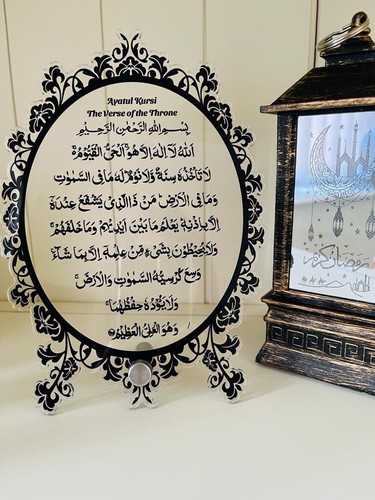 Ayatul Kursi
The Verse of the Throne
بِسْمِ اللهِ الرَّحْمٰنِ الرَّحِيْمِ
اَللهُ لَآ اِلٰهَ اِلَّا هُوَ اَلْحَىُّ الْقَيُّوْمُ
لَا تَاْخُذُهٗ سِنَةٌ وَّلَا نَوْمٌ لَهٗ مَا فِى السَّمٰوٰتِ
وَمَا فِى الْاَرْضِ مَنْ ذَا الَّذِىْ يَشْفَعُ عِنْدَهٗ
اِلَّا بِاِذْنِهٖ يَعْلَمُ مَا بَيْنَ اَيْدِيْهِمْ وَمَا خَلْفَهُمْ
وَلَا يُحِيْطُوْنَ بِشَىْءٍ مِّنْ عِلْمِهٖٓ اِلَّا بِمَا شَآءَ
وَسِعَ كُرْسِيُّهُ السَّمٰوٰتِ وَالْاَرْضَ
وَلَا يَئُوْدُهٗ حِفْظُهُمَا
وَهُوَ الْعَلِىُّ الْعَظِيْمُ
رمضان كريم